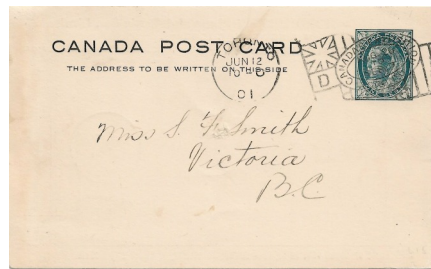 CANADA POST CARD
THE ADDRESS TO BE WRITTEN ON THIS SIDE
JUN 12
01
D
Miss S. F. Smith
Victoria
B.C